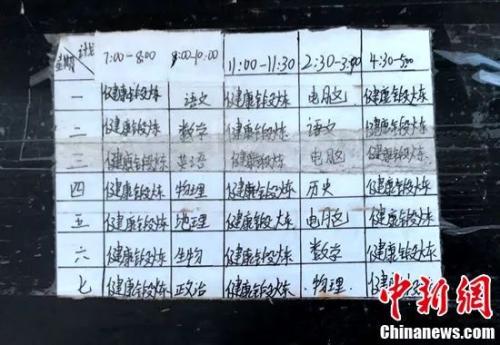 星期 计划 7:00-8:00 8:00-10:00 11:00-11:30 2:30-3:30 4:30-5:00
一 健康锻炼 语文 健康锻炼 电脑 健康锻炼
二 健康锻炼 数学 健康锻炼 语文 健康锻炼
三 健康锻炼 英语 健康锻炼 电脑 健康锻炼
四 健康锻炼 物理 健康锻炼 历史 健康锻炼
五 健康锻炼 地理 健康锻炼 电脑 健康锻炼
六 健康锻炼 生物 健康锻炼 数学 健康锻炼
七 健康锻炼 政治 健康锻炼 物理 健康锻炼
中新网
Chinanews.com